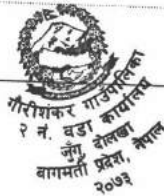 गौरीशंकर गाउँपालिका
२ नं. वडा कार्यालय
जुँगू दोलखा
बागमती प्रदेश, नेपाल
२०७३